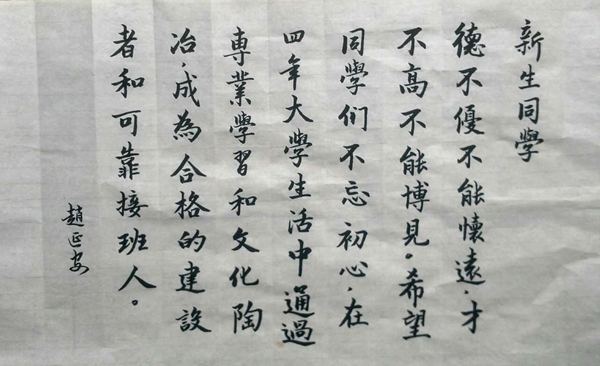 新生同學
德不優不能懷遠，才
不高不能博見。希望
同學们不忘初心，在
四年大學生活中通過
専業學習和文化陶
冶，成為合格的建設
者和可靠接班人。
趙延安